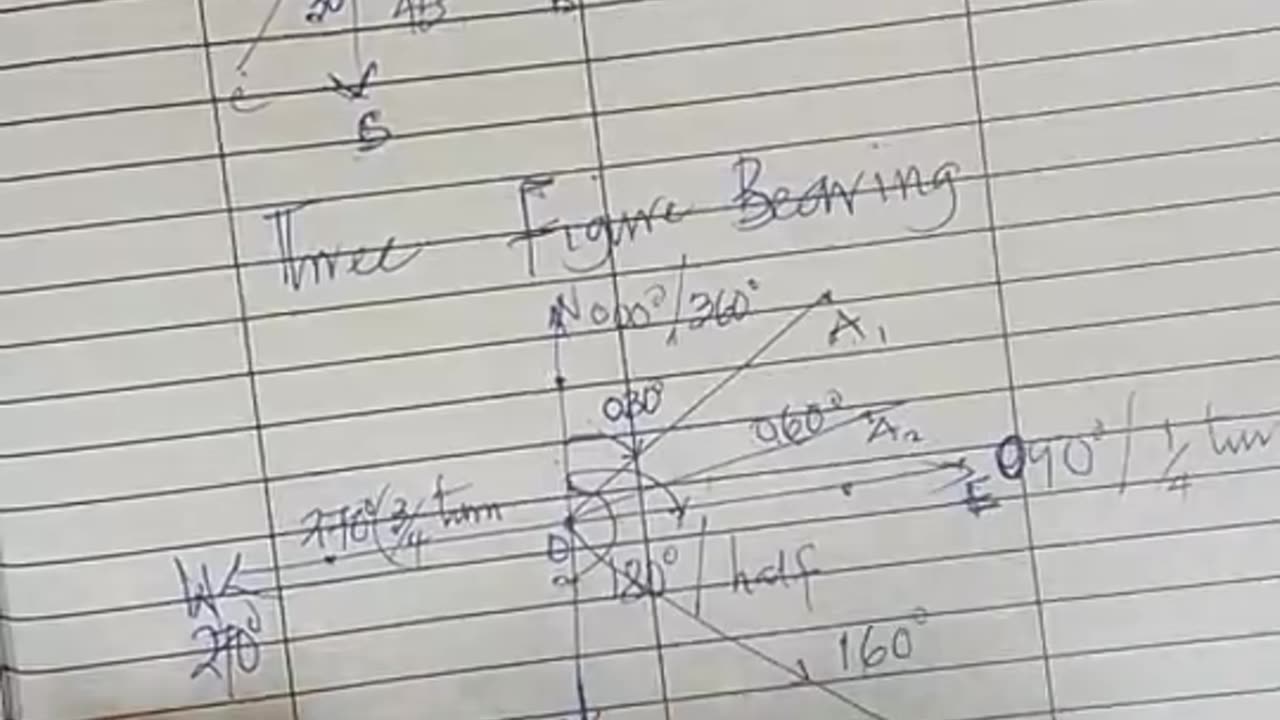 20
C
S
Three Figure Bearing
N 000°/360°
A1
030°
060° A2
E 090°/ 1/4 turn
270°/ 3/4 turn
O
W
270°
180°/half
160°